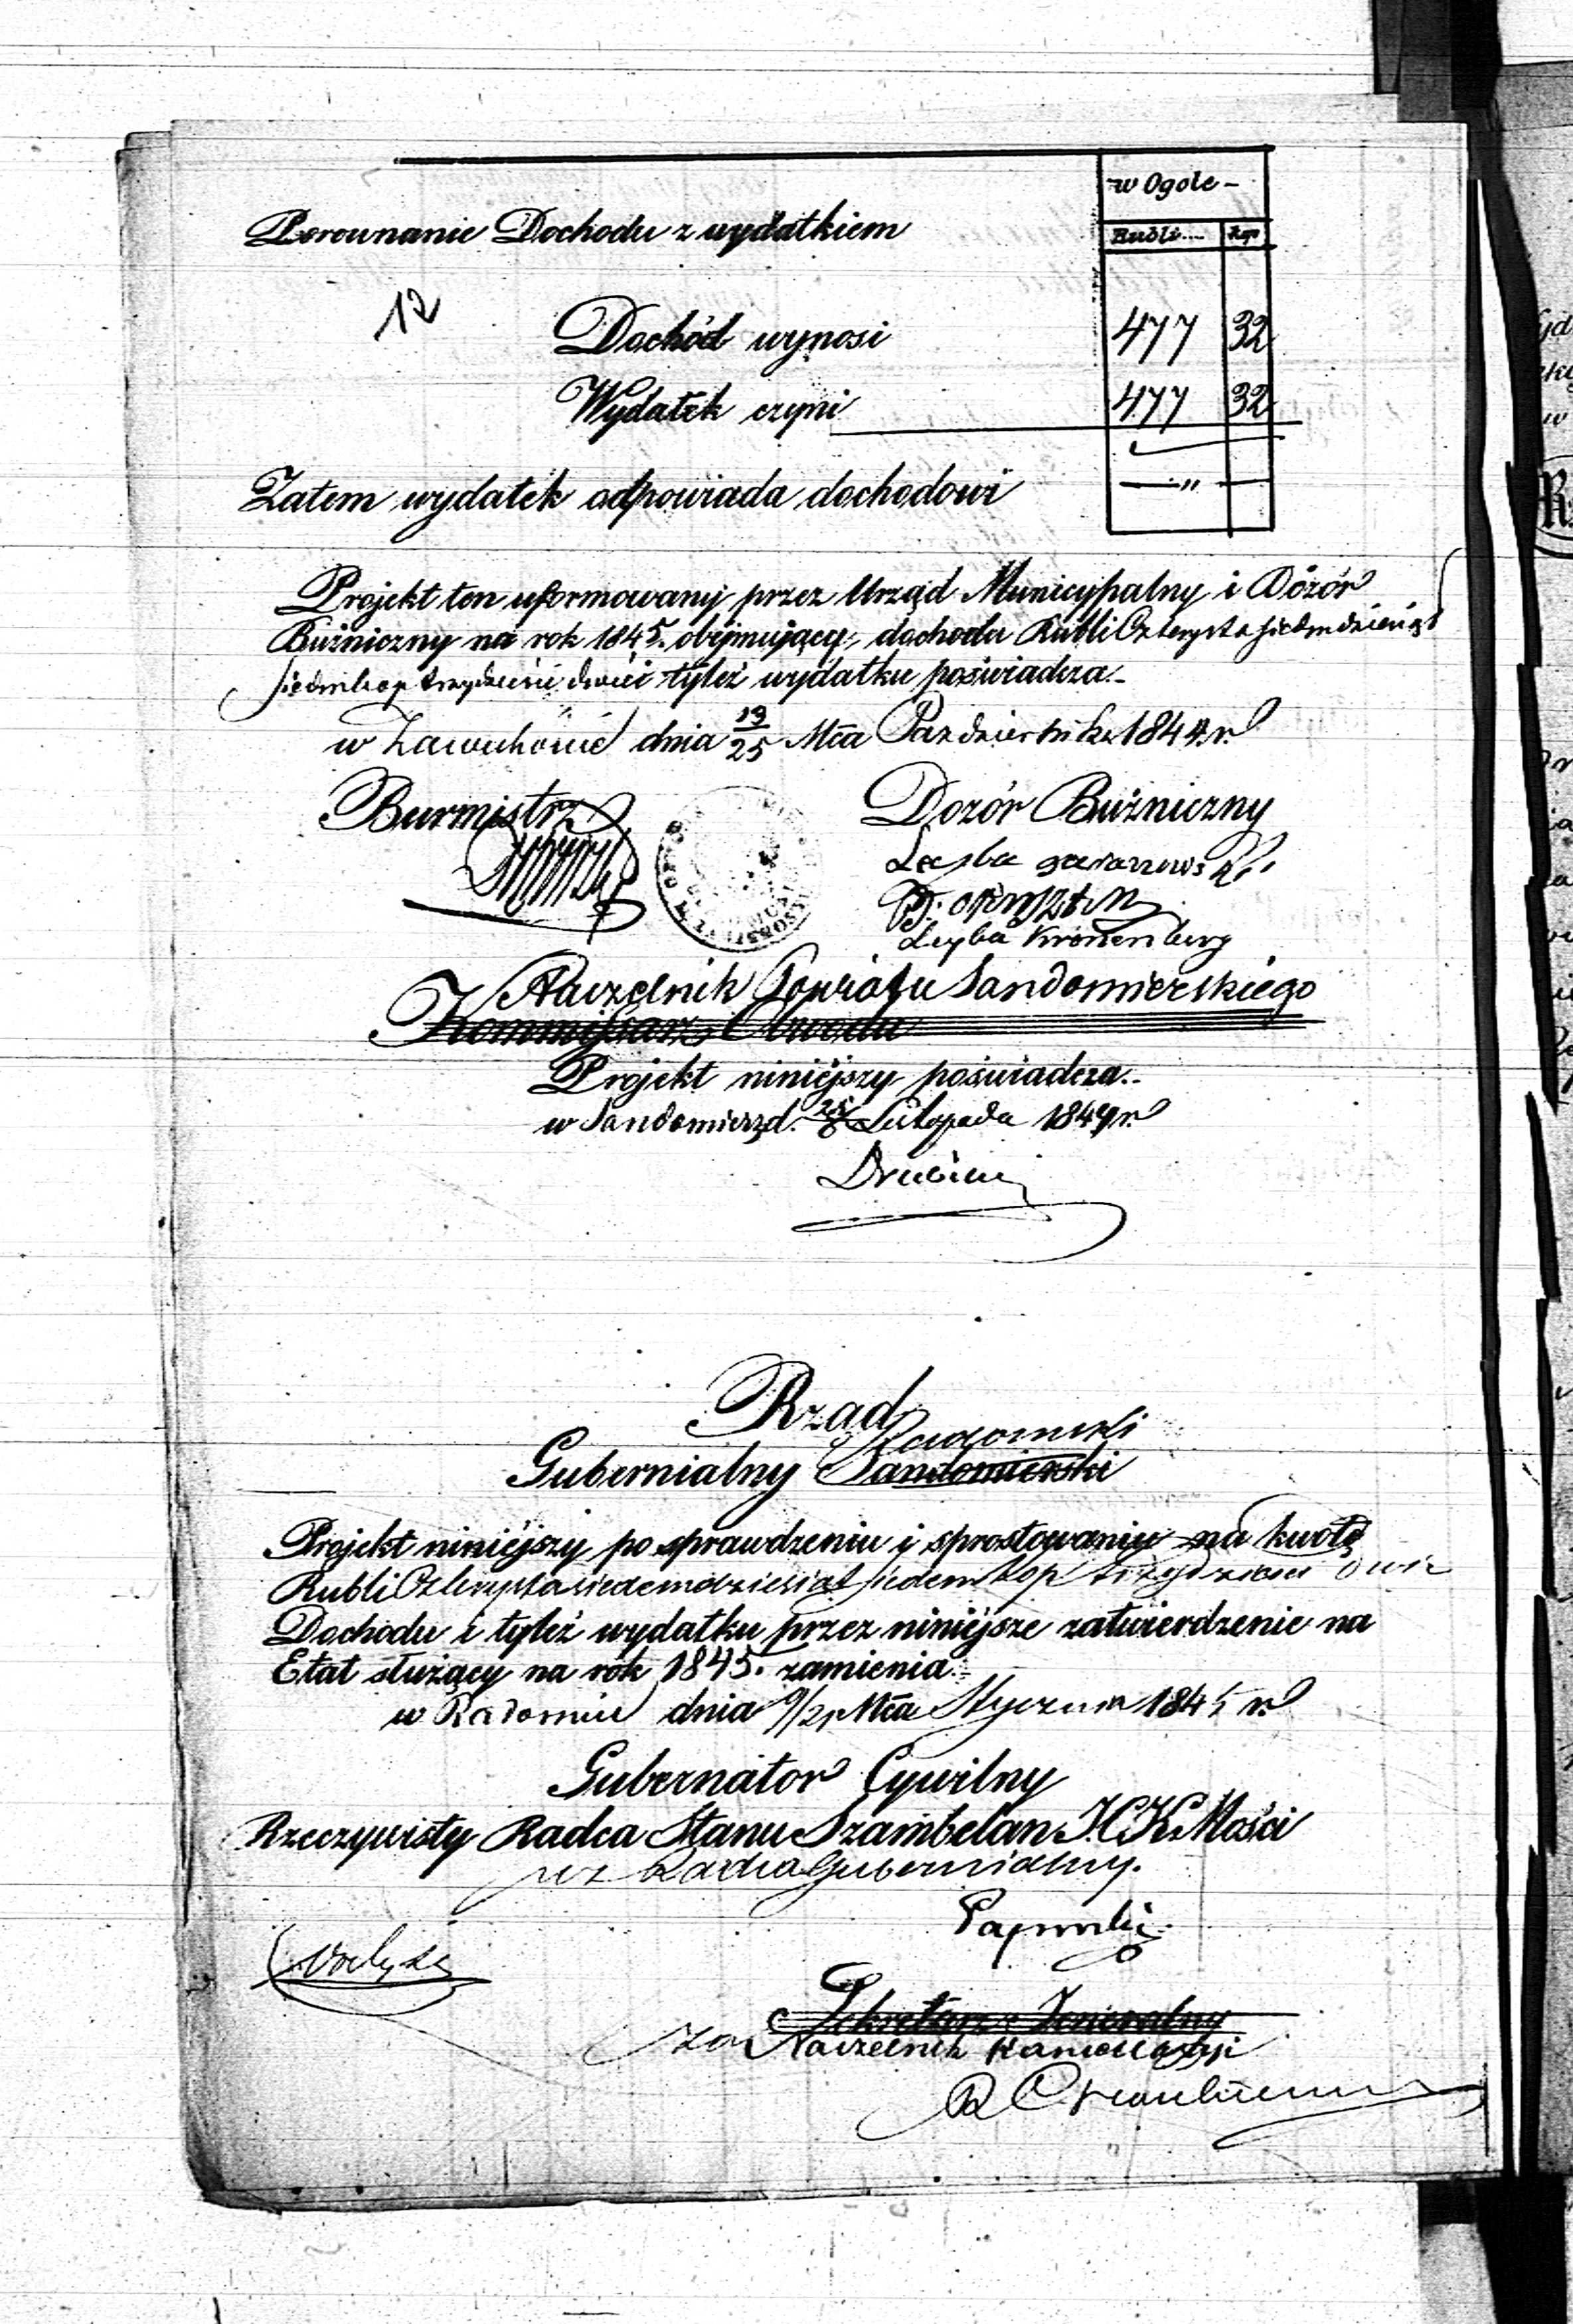 w Ogóle -
Porownanie Dochodu z wydatkiem
Rubli.... kop
12
Dochód wynosi 477 32
Wydatek czyni 477 32
Zatem wydatek odpowiada dochodowi — " —
Projekt ten uformowany przez Urząd Municypalny i Dózór
Buźniczny na rok 1845. obejmujący, dochodu Rubli Czterysta siedmdziesiąt
siedm kop trzydzieści dwie i tyleż wydatku poświadcza.-
w Zawichoście dnia 13/25 Mca Października 1844 r.
Burmistrz
Dozór Buźniczny
Leyba
Leyba Kronenberg
Naczelnik Powiatu Sandomierskiego
Kommissarz Obwodu
Projekt niniejszy poświadcza..
w Sandomierzu d. Listopada 1844 r.
Rząd
Radomski
Gubernialny Sandomierski
Projekt niniejszy po sprawdzeniu i sprostowaniu na kwotę
Rubli Czterysta siedemdziesiąt siedem kop trzydzieści dwie
Dochodu i tyleż wydatku przez niniejsze zatwierdzenie na
Etat służący na rok 1845. zamienia.
w Radomiu dnia 9/21 Mca Stycznia 1845 r.
Gubernator Cywilny
Rzeczywisty Radca Stanu Szambelan J.C.K. Mości
wz Radca Gubernialny.
Sekretarz Jeneralny
za Naczelnik Kancellaryi